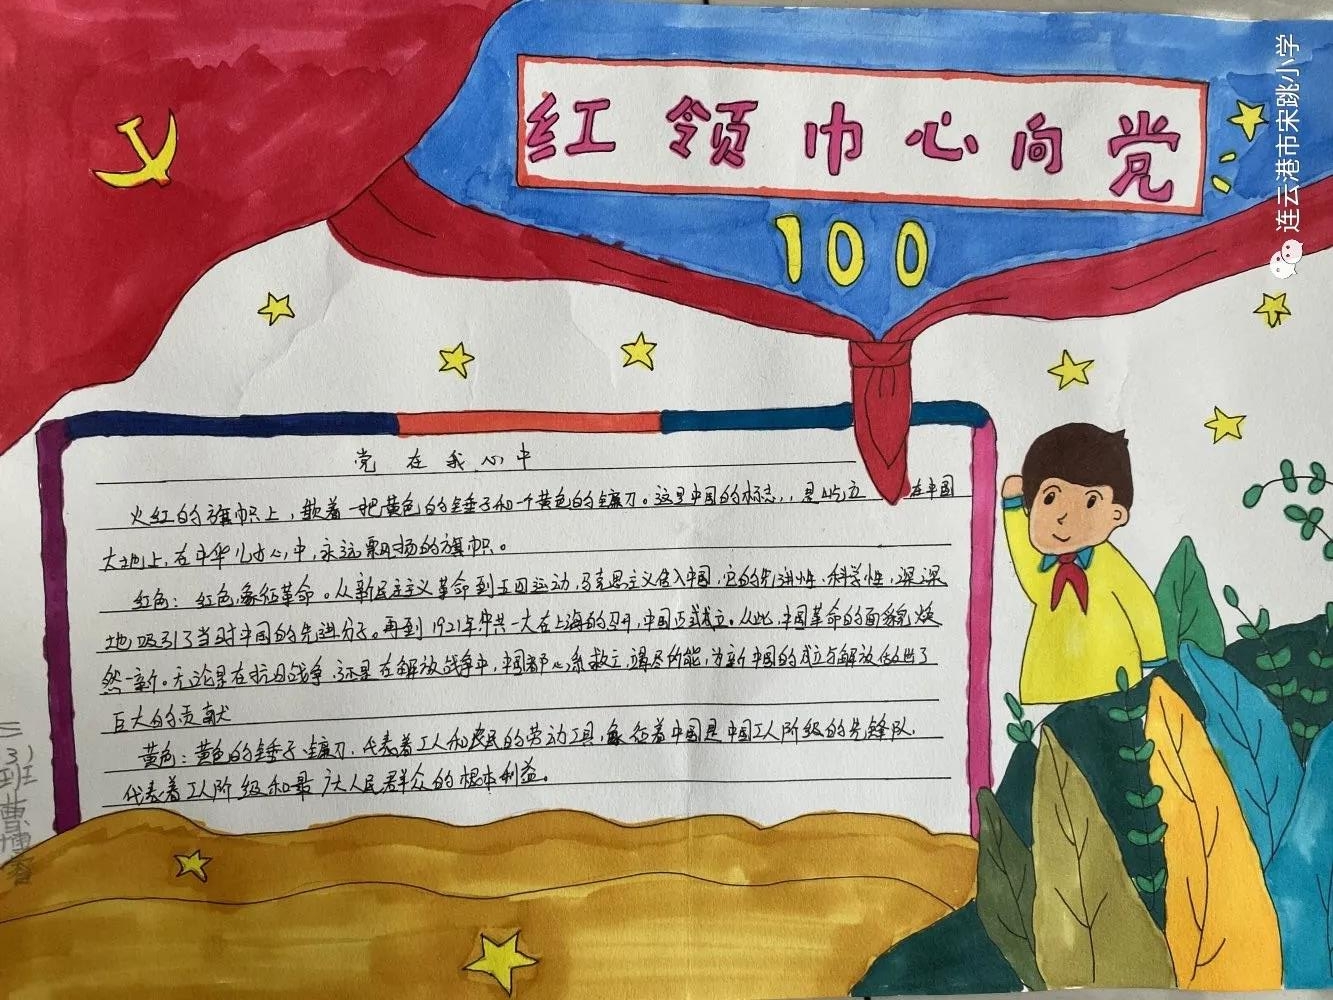 红领巾心向党
100
连云港市宋跳小学
党在我心中
火红的旗帜上，散着一把黄色的锤子和一个黄色的镰刀。这里中国的标志，，是屹立在中国
大地上，在中华儿女心中，永远飘扬的旗帜。
红色：红色，象征革命。从新民主主义革命到五四运动，马克思主义传入中国，它的先进性、科学性，深深
地吸引了当时中国的先进分子。再到1921年中共一大在上海的召开，中国正式成立。从此，中国革命的面貌焕
然一新。无论是在抗日战争，还是在解放战争中，中国都心系救立，竭尽所能，为新中国的成立与解放做出了
巨大的贡献
黄色：黄色的锤子、镰刀，代表着工人和农民的劳动工具，象征着中国是中国工人阶级的先锋队，
代表着工人阶级和最广大人民群众的根本利益。
三（3）
班
曹